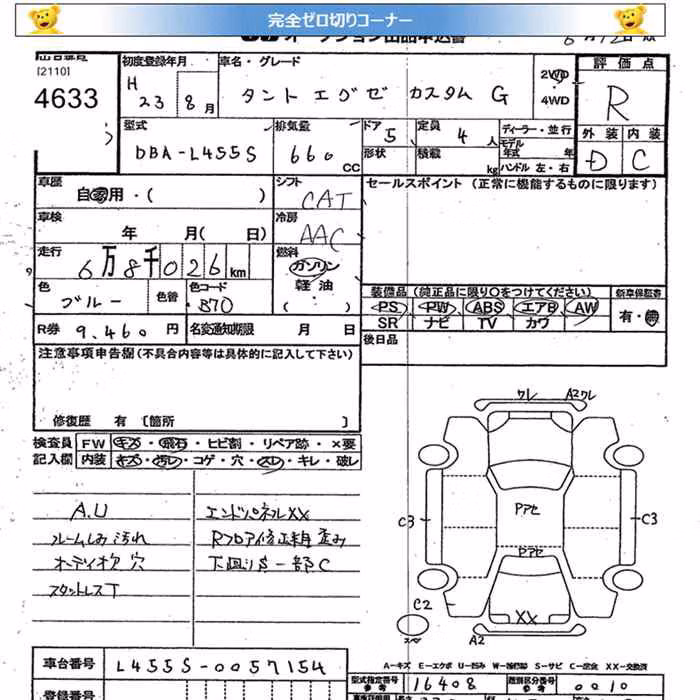 完全ゼロ切りコーナー
[2110]
4633
初度登録年月 車名・グレード
H 23 8月 タントエグゼ カスタム G 2WD 4WD
評価点
R
型式 排気量 ドア 定員
DBA-L455S 660 CC 5 4人
形状 積載 kg
ディーラー・並行
モデル年式 年
ハンドル 左・右
外装 内装
D C
車歴 自家用・( )
シフト CAT
セールスポイント (正常に機能するものに限ります)
車検 年 月( 日)
冷房 AAC
走行 6万8千026km
燃料 ガソリン 軽油 ( )
色 ブルー 色替 色コード B70
装備品 (純正品に限り○をつけてください) 新車保証書
PS PW ABS エアB AW 有・無
SR ナビ TV カワ
R券 9,460円 名変通知期限 月 日
後日品
注意事項申告欄(不具合内容等は具体的に記入して下さい)
修復歴 有 [箇所 ]
検査員記入欄
FW キズ・飛石・ヒビ割・リペア跡・×要
内装 キズ・汚レ・コゲ・穴・スレ・キレ・破レ
A.U エンドパネルXX
ルームしみ汚れ Rフロア修正精 歪み
オーディオ欠 穴 下廻りS一部C
スタットレスT
ワレ A2ワレ
Pアセ
C3 C3
Pアセ
C2
XX
スペ A2
A-キズ E-エクボ U-凹み W-補修跡 S-サビ C-腐食 XX-交換済
車台番号 L455S-0057154
型式指定番号 参考 16408 類別区分番号 参考 0010
登録番号